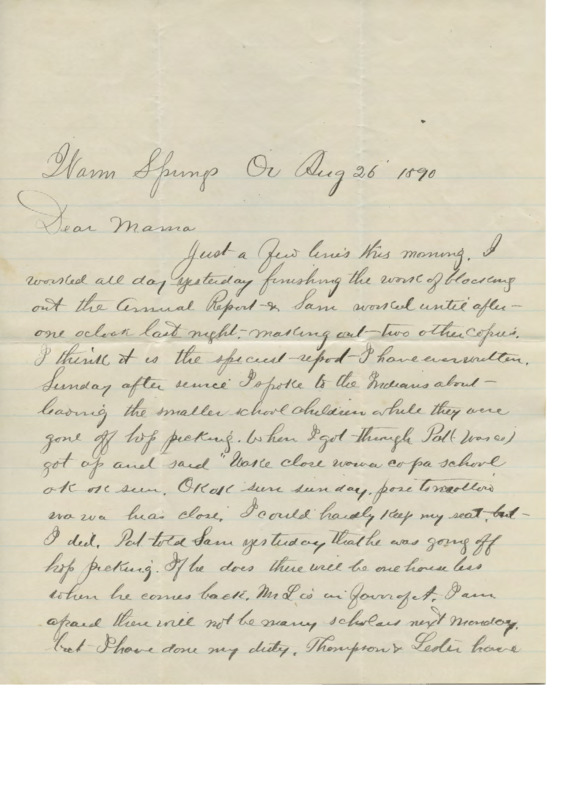 Warm Springs Or Aug 26 1890
Dear Mama
Just a few lines this morning. I
worked all day yesterday finishing the work of blocking
out the Annual Report & Sam worked until after
one oclock last night making out two other copies.
I think it is the report I have ever written.
Sunday after service I spoke to the Indians about
leaving the smaller school children while they were
gone off hop picking. When I got through Polk
got up and said "Wake close wawa copa school
ok ok sun. Ok ok sun sunday, pose tomollow
wa wa hias close. I could hardly keep my seat, but
I did. Pat told Sam yesterday that he was going off
hop picking. If he does there will be one house less
when he comes back. Mr L is in favor of it. I am
afraid there will not be many scholars next Monday,
but I have done my duty. Thompson & Lester have